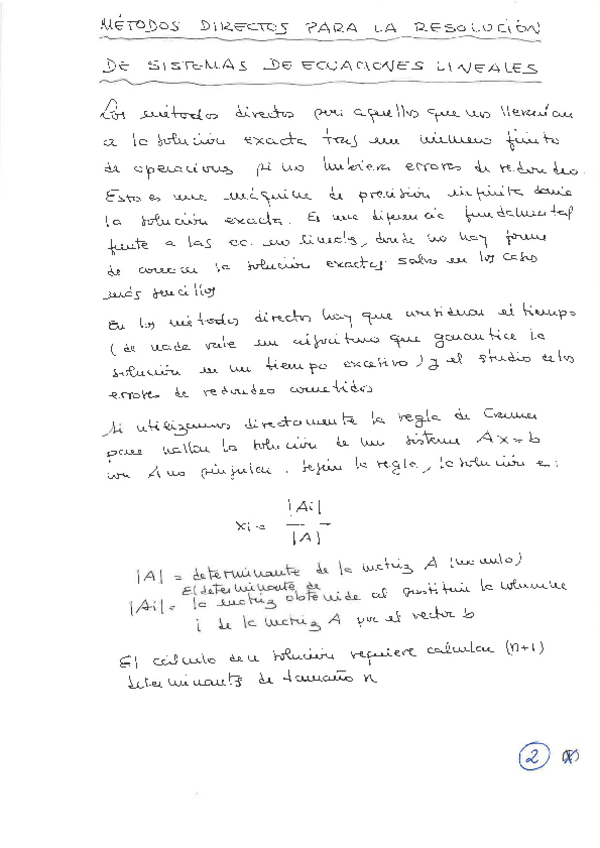 MÉTODOS DIRECTOS PARA LA RESOLUCIÓN
DE SISTEMAS DE ECUACIONES LINEALES
Los métodos directos son aquellos que nos llevarían
a la solución exacta tras un número finito
de operaciones si no hubiera errores de redondeo.
Esto es una máquina de precisión infinita daría
la solución exacta. Es una diferencia fundamental
frente a las ec. no lineales, donde no hay forma
de conocer la solución exacta salvo en los casos
más sencillos
En los métodos directos hay que considerar el tiempo
(de nada vale un algoritmo que garantice la
solución en un tiempo excesivo) y el studio de los
errores de redondeo cometidos
Si utilizamos directamente la regla de Cramer
para hallar la solución de un sistema Ax=b
con A no singular. Según la regla, la solución es:
xi = |Ai| / |A|
|A| = determinante de la matriz A (no nulo)
El determinante de
|Ai| = la matriz obtenida al sustituir la columna
i de la matriz A por el vector b
El cálculo de la solución requiere calcular (n+1)
determinantes de tamaño n
2